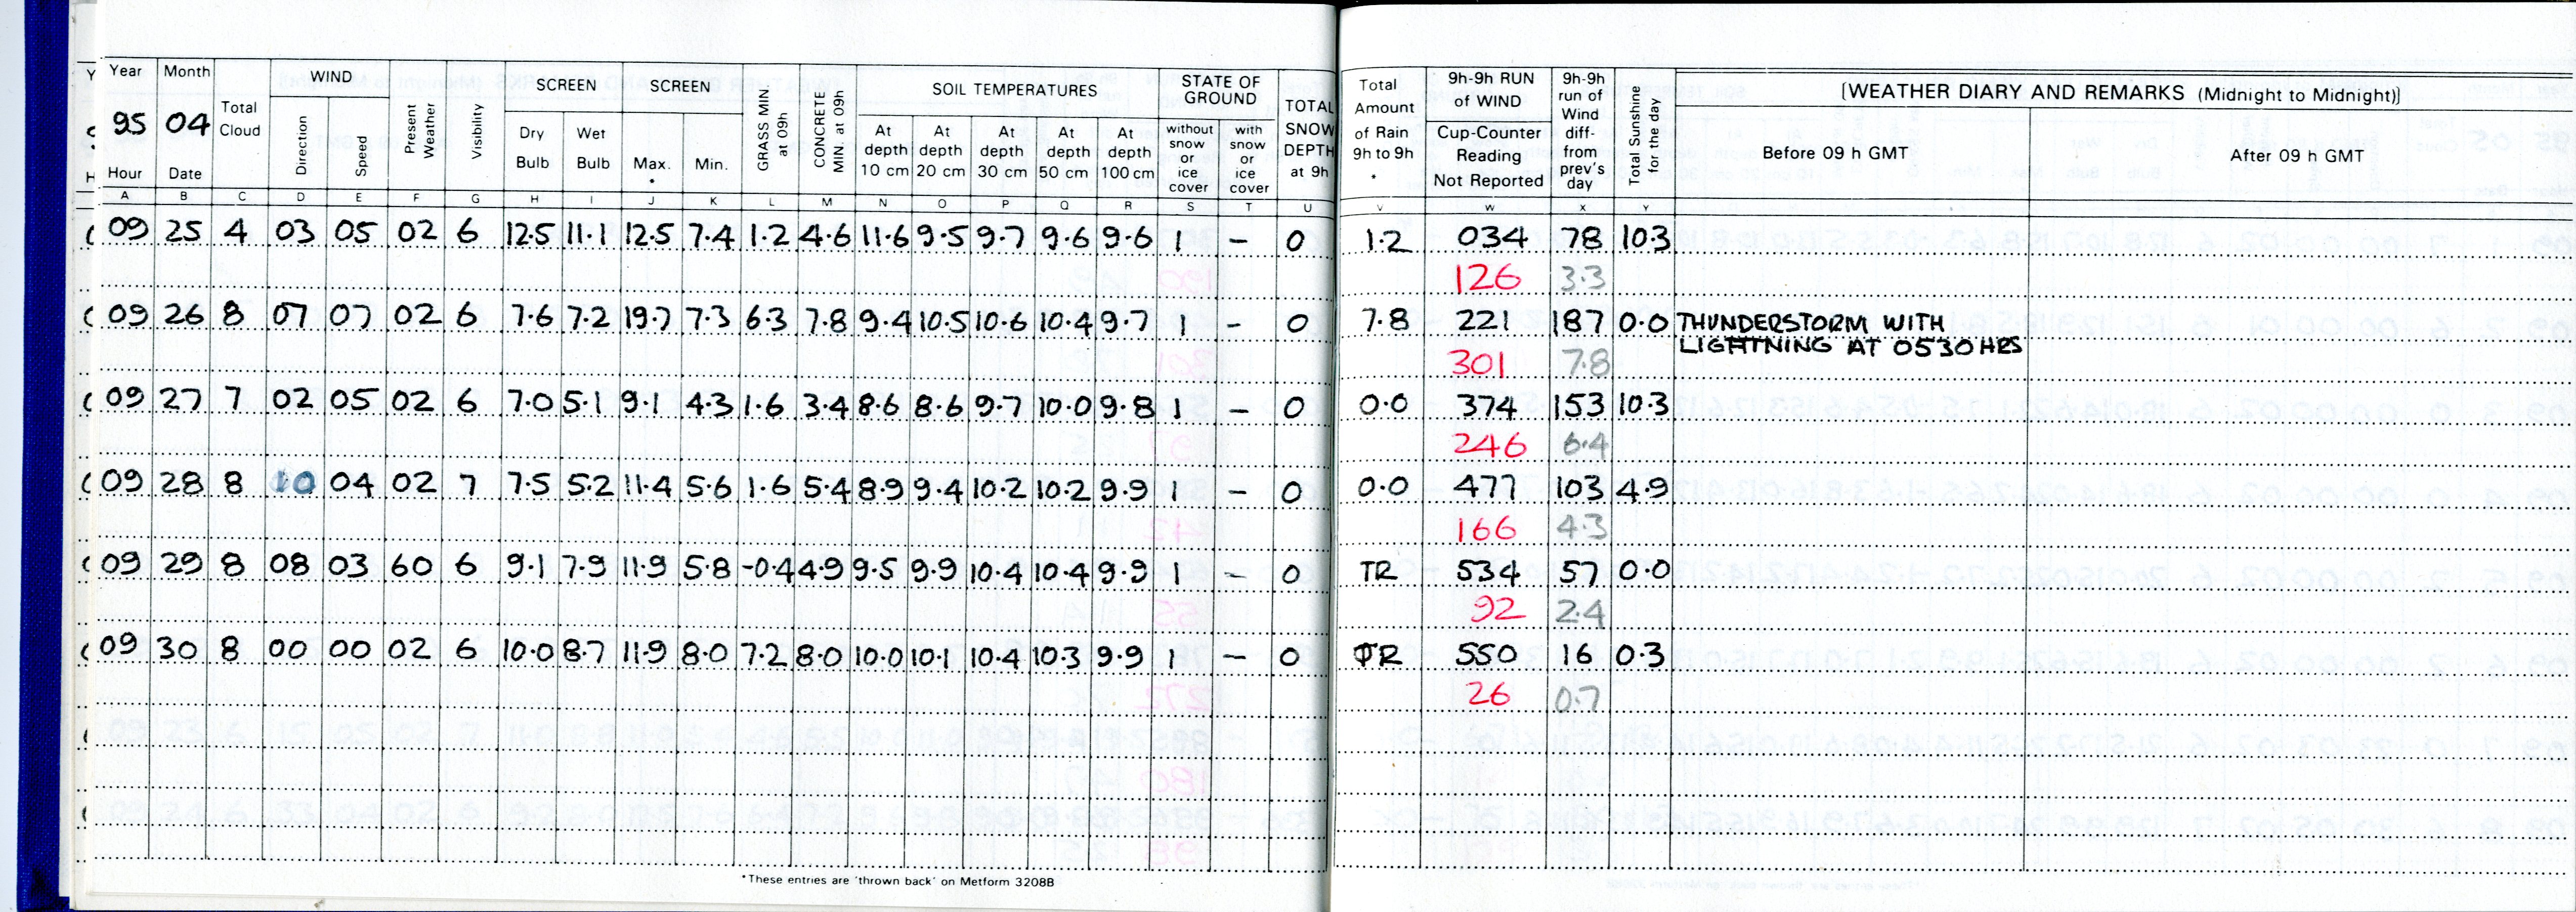 Year Month WIND SCREEN SCREEN SOIL TEMPERATURES STATE OF GROUND
95 04 Total Cloud Direction Speed Present Weather Visibility Dry Bulb Wet Bulb Max. * Min. GRASS MIN. at 09h CONCRETE MIN. at 09h At depth 10 cm At depth 20 cm At depth 30 cm At depth 50 cm At depth 100 cm without snow or ice cover with snow or ice cover TOTAL SNOW DEPTH at 9h
Hour Date
A B C D E F G H I J K L M N O P Q R S T U
09 25 4 03 05 02 6 12.5 11.1 12.5 7.4 1.2 4.6 11.6 9.5 9.7 9.6 9.6 1 – 0
09 26 8 07 07 02 6 7.6 7.2 19.7 7.3 6.3 7.8 9.4 10.5 10.6 10.4 9.7 1 – 0
09 27 7 02 05 02 6 7.0 5.1 9.1 4.3 1.6 3.4 8.6 8.6 9.7 10.0 9.8 1 – 0
09 28 8 10 04 02 7 7.5 5.2 11.4 5.6 1.6 5.4 8.9 9.4 10.2 10.2 9.9 1 – 0
09 29 8 08 03 60 6 9.1 7.9 11.9 5.8 -0.4 4.9 9.5 9.9 10.4 10.4 9.9 1 – 0
09 30 8 00 00 02 6 10.0 8.7 11.9 8.0 7.2 8.0 10.0 10.1 10.4 10.3 9.9 1 – 0
*These entries are 'thrown back' on Metform 3208B
Total Amount of Rain 9h to 9h * 9h-9h RUN of WIND Cup-Counter Reading Not Reported 9h-9h run of Wind diff- from prev's day Total Sunshine for the day [WEATHER DIARY AND REMARKS (Midnight to Midnight)]
Before 09 h GMT After 09 h GMT
V W X Y
1.2 034 78 10.3
126 3.3
7.8 221 187 0.0 THUNDERSTORM WITH
LIGHTNING AT 0530 HRS
301 7.8
0.0 374 153 10.3
246 6.4
0.0 477 103 4.9
166 4.3
TR 534 57 0.0
92 2.4
TR 550 16 0.3
26 0.7